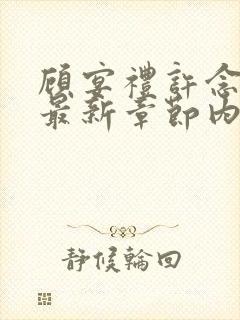 顾宴禮許念
最新章節內
靜候輪回